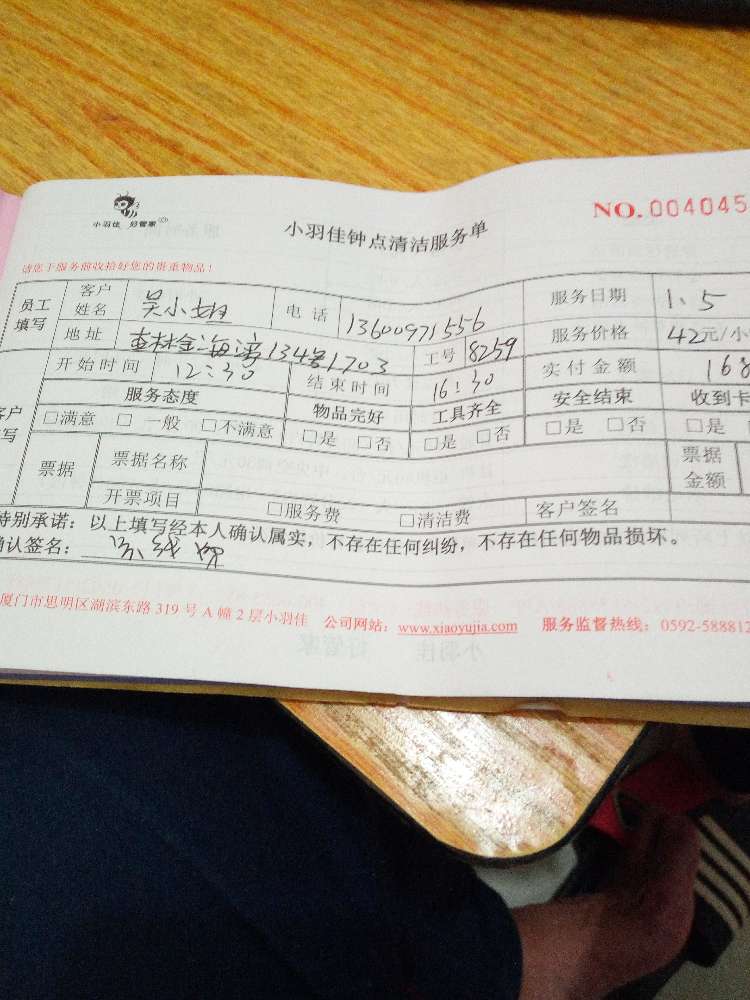 小羽佳 好管家
小羽佳钟点清洁服务单
NO. 004045
请您于服务前收拾好您的贵重物品！
员工填写 客户姓名 吴小姐 电话 13600971556 服务日期 1.5
地址 杏林金海湾134号1703 工号 8259 服务价格 42元/小
开始时间 12:30 结束时间 16:30 实付金额 168
服务态度 物品完好 工具齐全 安全结束 收到卡
□满意 □ 一般 □不满意 □是 □否 □是 □否 □是 □否 □是
票据 票据名称 票据金额
开票项目 □服务费 □清洁费 客户签名
特别承诺：以上填写经本人确认属实，不存在任何纠纷，不存在任何物品损坏。
确认签名：
厦门市思明区湖滨东路 319 号 A 幢 2 层小羽佳 公司网站：www.xiaoyujia.com 服务监督热线：0592-588812